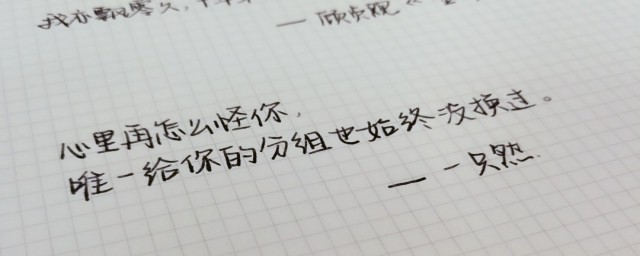 我亦飘零久,十年
—顾贞观《金
心里再怎么怪你,
唯一给你的分组也始终没换过。
——一只然